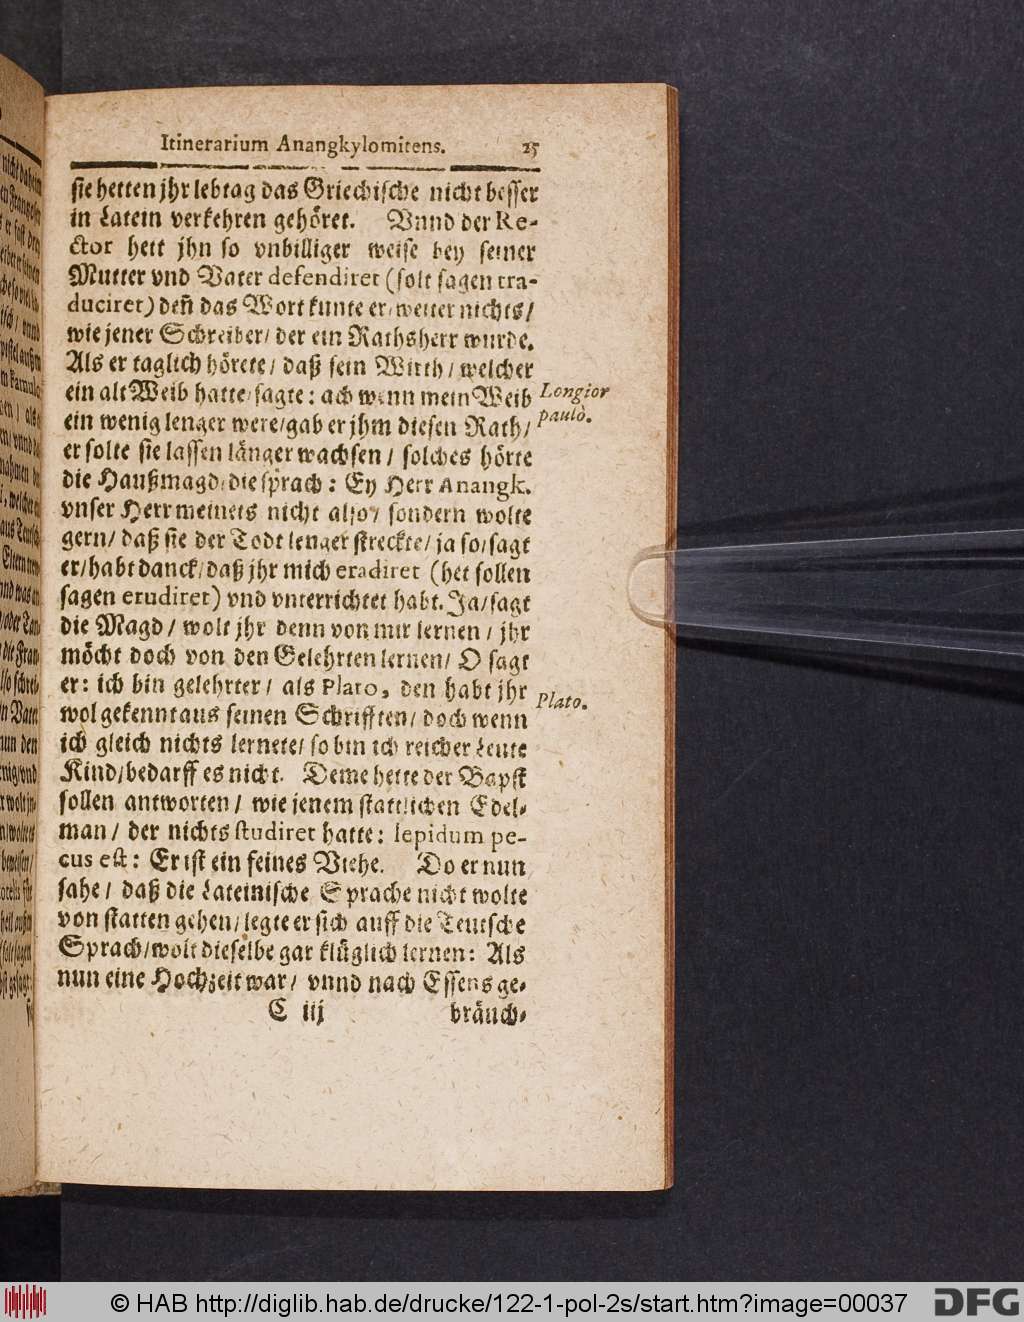 Itinerarium Anangkylomitens. 25
sie hetten jhr lebtag das Griechische nicht besser
in Latein verkehren gehöret. Vnnd der Re-
ctor hett jhn so vnbilliger weise bey seiner
Mutter vnd Vater defendiret (solt sagen tra-
duciret) deñ das Wort kunte er/ weiter nichts/
wie jener Schreiber/ der ein Rathsherr wurde.
Als er taglich hörete/ daß sein Wirth/ welcher
ein alt Weib hatte/ sagte: ach wenn mein Weib
Longior
ein wenig lenger were/ gab er jhm diesen Rath/
paulò.
er solte sie lassen länger wachsen/ solches hörte
die Haußmagd/ die sprach: Ey Herr Anangk.
vnser Herr meinets nicht also/ sondern wolte
gern/ daß sie der Todt lenger streckte/ ja so/ sagt
er/ habt danck/ daß jhr mich eradiret (het sollen
sagen erudiret) vnd vnterrichtet habt. Ja/ sagt
die Magd/ wolt jhr denn von mir lernen/ jhr
möcht doch von den Gelehrten lernen/ O sagt
er: ich bin gelehrter/ als Plato, den habt jhr
Plato.
wol gekennt aus seinen Schrifften/ doch wenn
ich gleich nichts lernete/ so bin ich reicher Leute
Kind/ bedarff es nicht. Deme hette der Bapst
sollen antworten/ wie jenem stattlichen Edel-
man/ der nichts studiret hatte: lepidum pe-
cus est: Er ist ein feines Viehe. Do er nun
sahe/ daß die Lateinische Sprache nicht wolte
von statten gehen/ legte er sich auff die Teutsche
Sprach/ wolt dieselbe gar klüglich lernen: Als
nun eine Hochzeit war/ vnnd nach Essens ge-
C iij bräuch-
© HAB http://diglib.hab.de/drucke/122-1-pol-2s/start.htm?image=00037
DFG